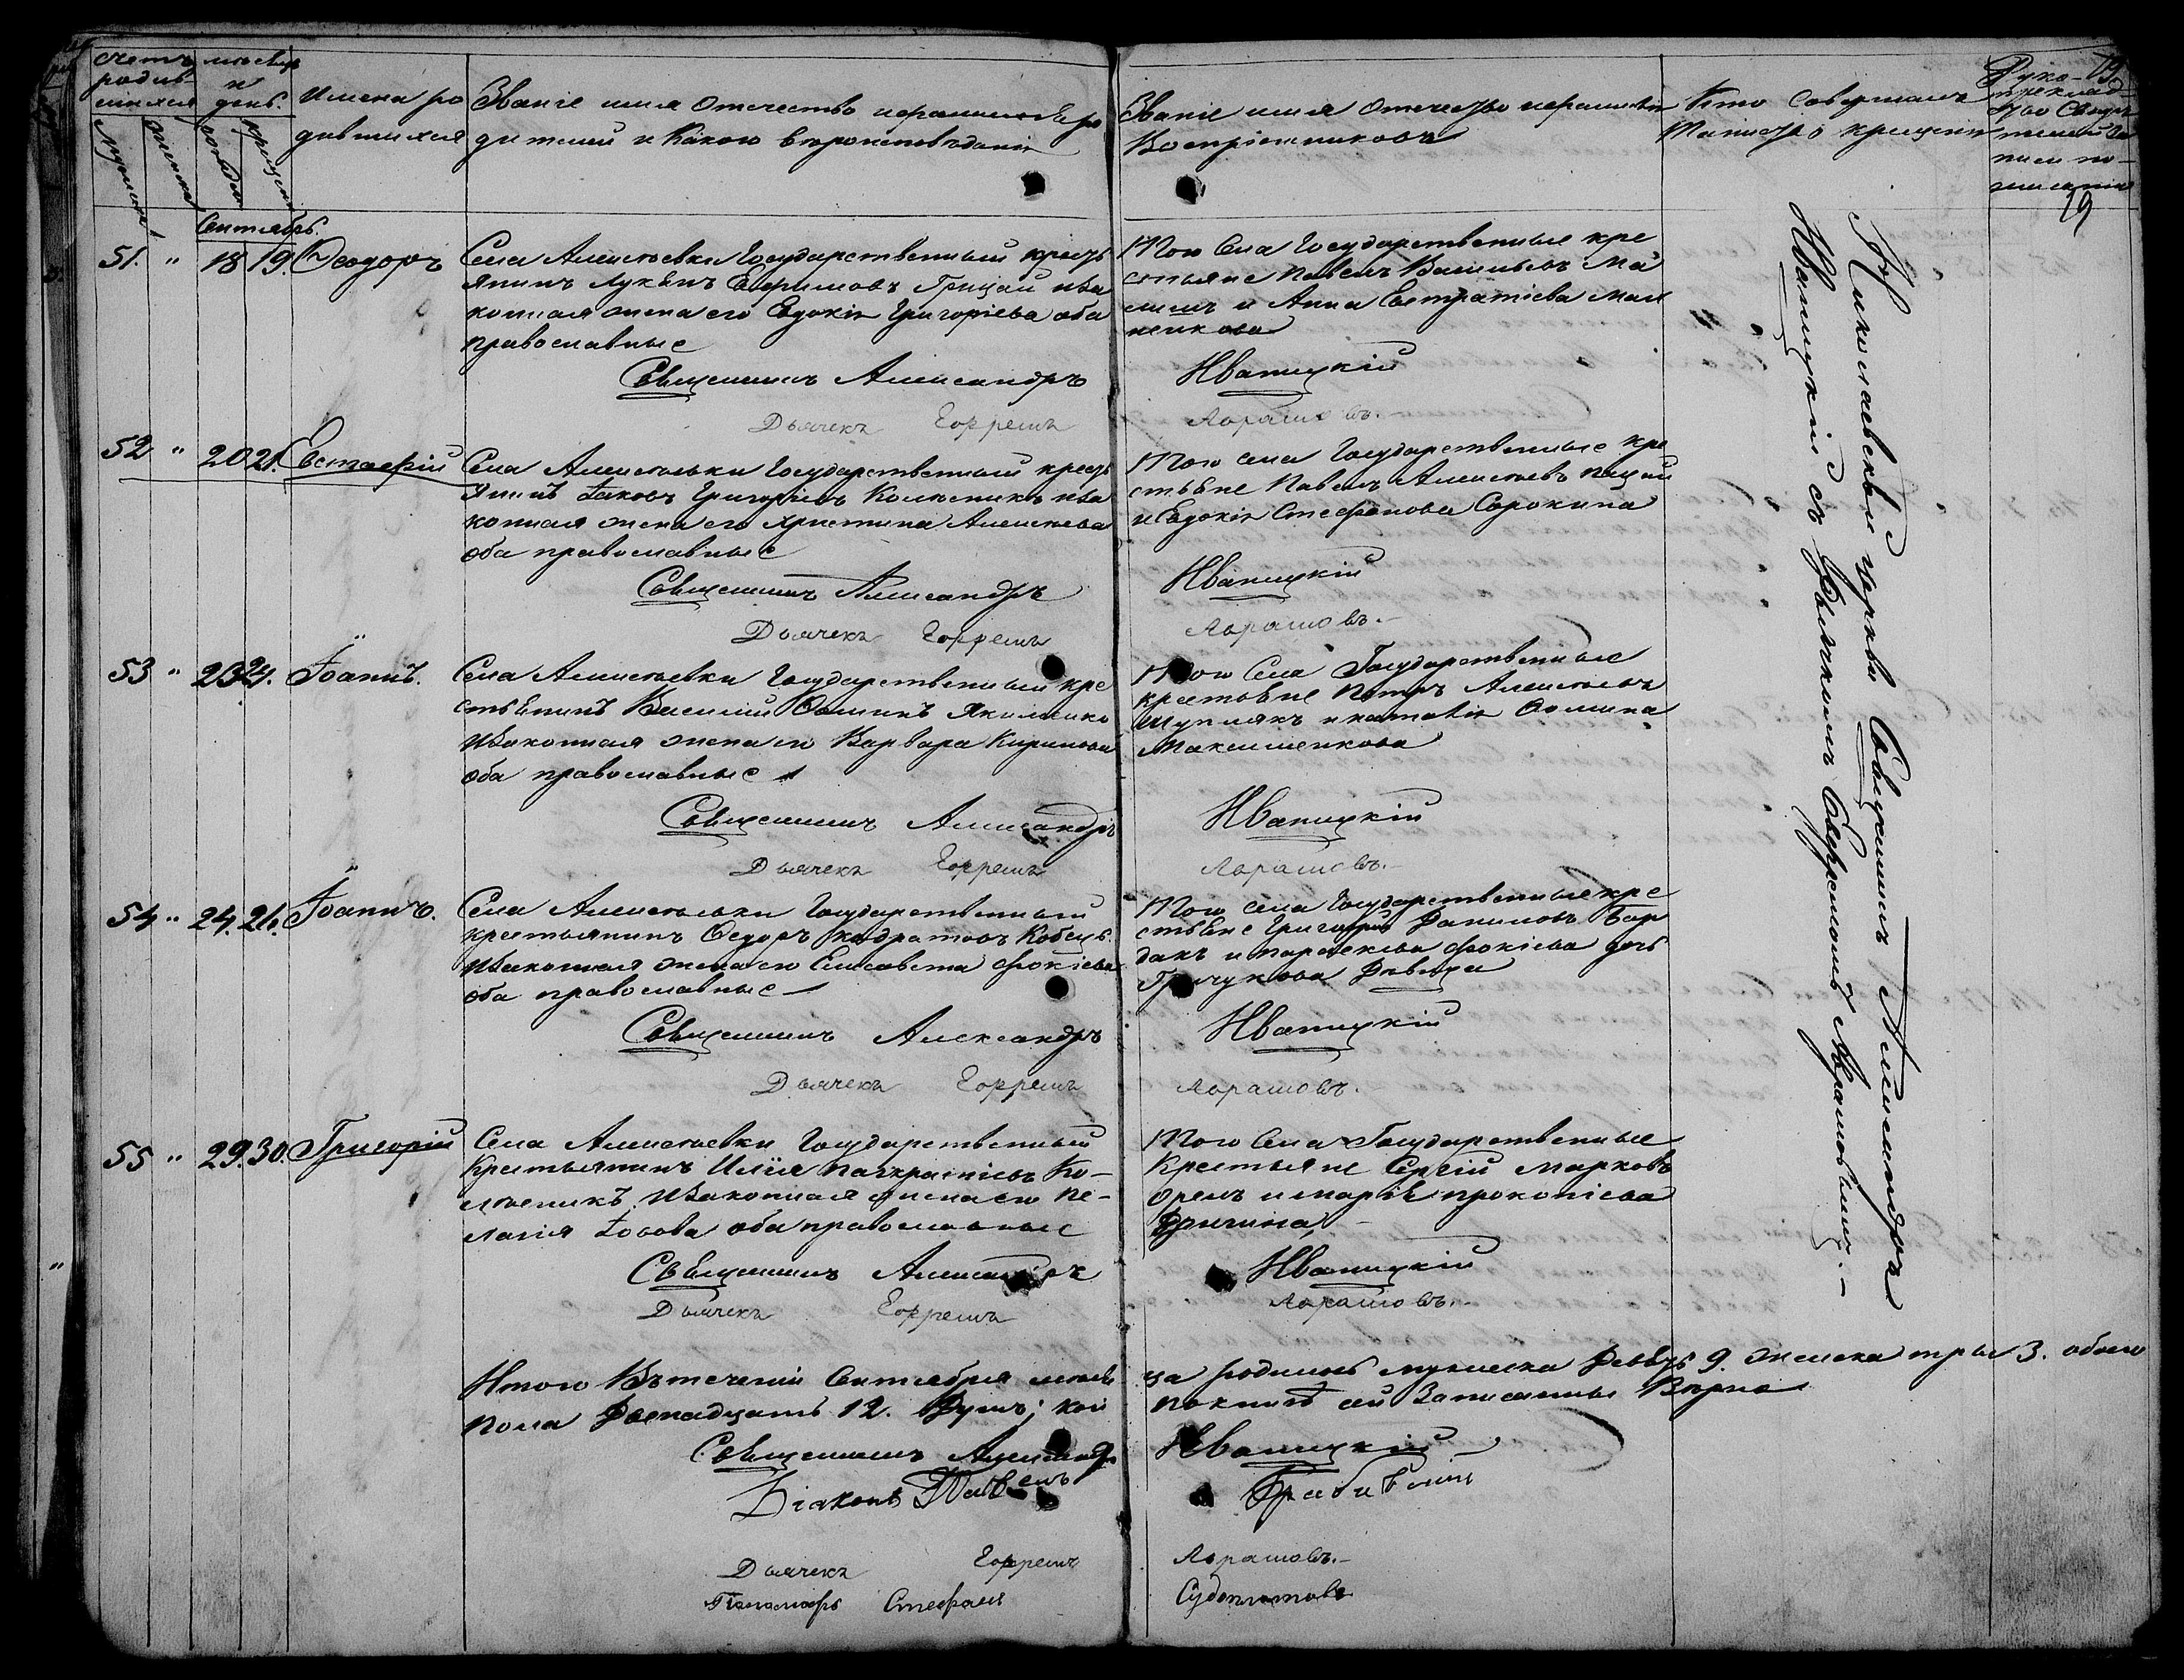 счетъ родив-
шихся
мужеска
женска
месяцъ
и
день.
рожденія
крещенія
Имена ро
дившихся
Званіе имя отечество и фамилія ро
дителей и Какого вѣроисповѣданія
Званіе имя отечество и фамилія
Воспріемниковъ
Кто Совершалъ
Таинство крещенія
Руко-
приклад
ство Свидѣ
телей за
писи по
желанію
19
Сентябрь.
51. " 18 19. Ѳеодоръ
Села Алексѣевки Государственный кресть
янинъ Лукьянъ Ефримовъ Грицай и за
конная жена его Евдокія Григоріева оба
православные
Того Села Государственные кре
стьяне Павелъ Васильевъ
и Анна Евстратіева
Священникъ Александръ Иваницкій
Дьячекъ Ефремъ Абрамовъ.-
52 " 20 21. Евстафій
Села Алексѣевки Государственный кресть
янинъ Іаковъ Григорьевъ Колѣсникъ и за
конная жена его Христина Алексѣева
оба православные
Того села Государственные кре
стьяне Павелъ Алексѣевъ
и Евдокія Стефанова Сорокина
Священникъ Александръ Иваницкій
Дьячекъ Ефремъ Абрамовъ.-
53 " 23 24. Іоаннъ.
Села Алексѣевки Государственный кре
стьянинъ Василій Ѳоминъ Якименко
и законная жена его Варвара Кирилова
оба православные
Того Села Государственные
крестьяне Петръ Алексѣевъ
Шуплякъ и
Максименкова
Священникъ Александръ Иваницкій
Дьячекъ Ефремъ Абрамовъ.-
54 " 24. 26. Іоаннъ.
Села Алексѣевки Государственный
крестьянинъ Ѳедоръ Кобецъ
и законная жена его Елисавета Фокіева
оба православные
Того села Государственные кре
стьяне Григорій Даниловъ Бар
дакъ и Параскева Фокіева дочь
Священникъ Александръ Иваницкій
Дьячекъ Ефремъ Абрамовъ.
55 " 29. 30. Григорій
Села Алексѣевки Государственный
Крестьянинъ Илія Панкратіевъ Ко-
лѣсникъ и законная жена его Пе-
лагія Іовова оба православные
Того Села Государственные
Крестьяне Сергій Марковъ
Орелъ и Марія Прокопіева
Священникъ Александръ Иваницкій
Дьячекъ Ефремъ Абрамовъ.-
Николаевской церкви Священникъ Александръ
Иваницкій съ Дьячкомъ Ефремомъ Абрамовымъ.-
Итого Въ теченіи Сентября меся ца родилось мужеска Девять 9. женска три 3. обоего
пола Двенадцать 12. Душъ; кои по книгѣ сей Записанны Вѣрно
Священникъ Александръ Иваницкій
Діаконъ Павелъ
Дьячекъ Ефремъ Абрамовъ.-
Пономарь Стефанъ Судоплатовъ